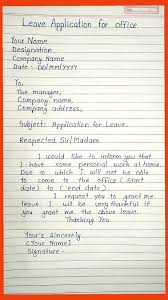 Leave Application for office
Your Name
Designation
Company Name
Date: DD/MM/YYYY
To,
The manager,
Company name,
Company address,
Subject: Application for Leave.
Respected Sir/Madam
I would like to inform you that
I have some personal work at home.
Due to which I will not be able
to come to the office (Start
date) to (end date).
I request you to grant me
leave I will be very thankful if
you grant me the above leave.
Thanking You
Your's Sincerely.
(Your Name)
Signature -